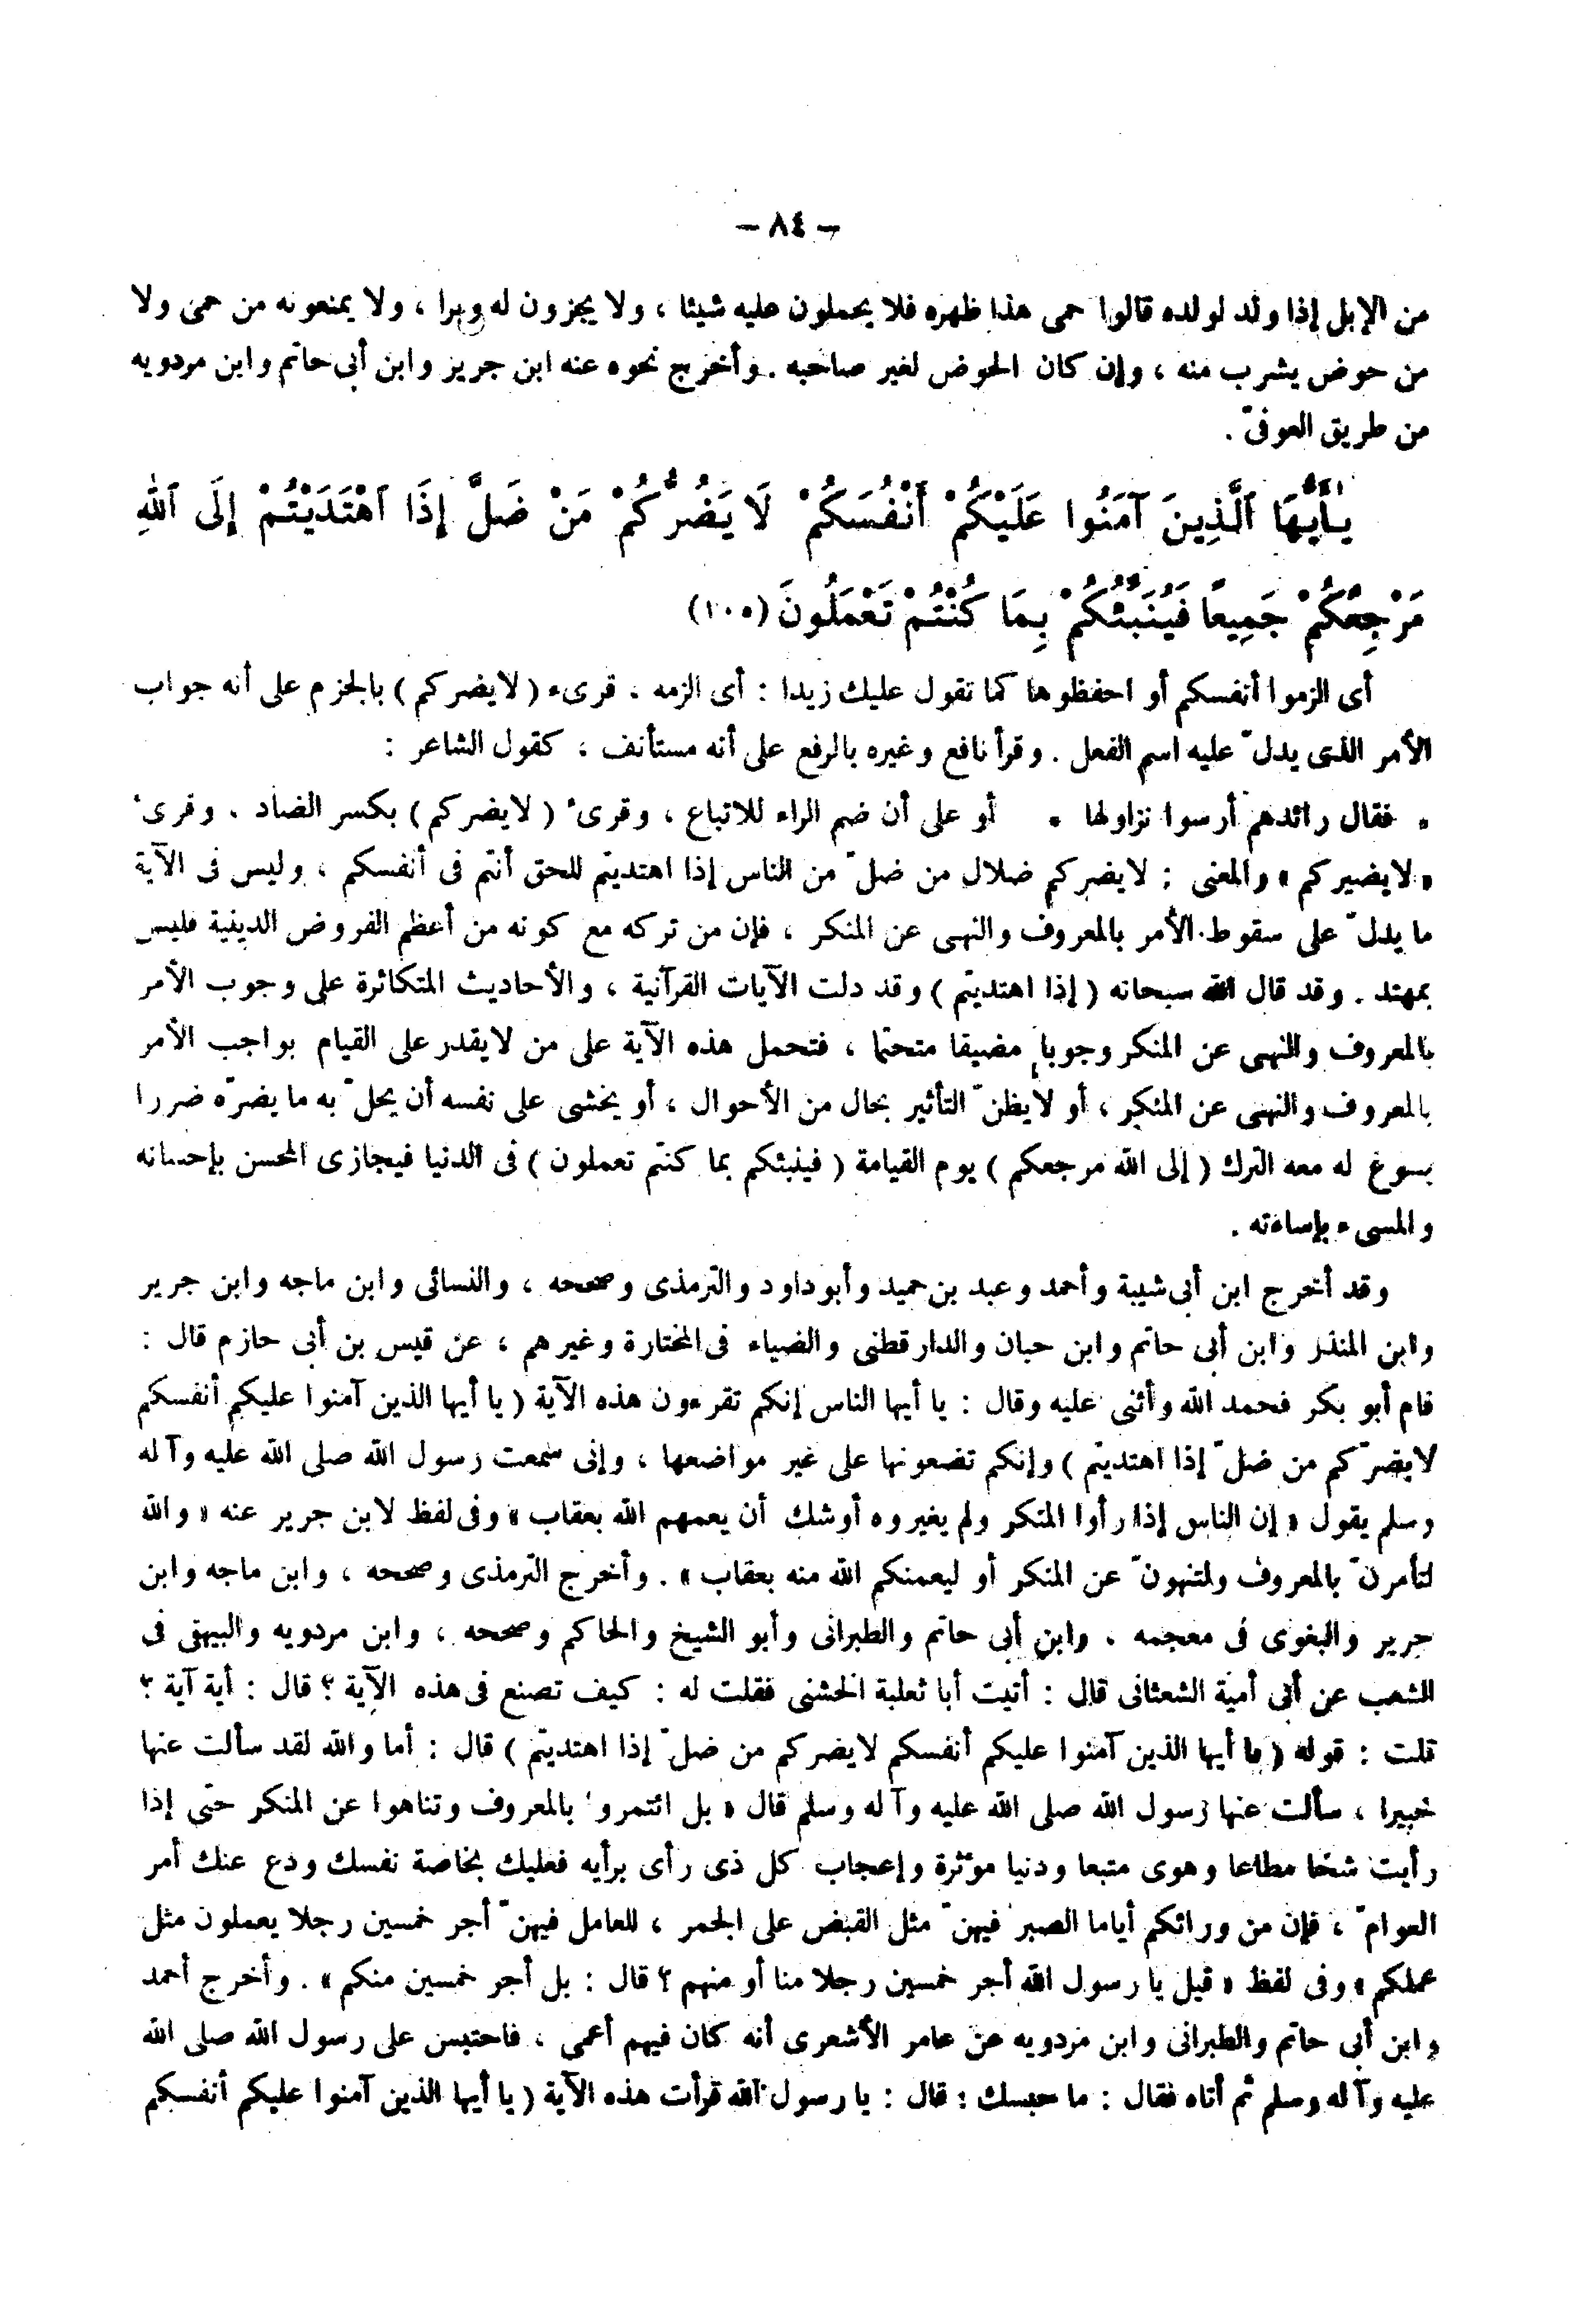 — ٨٤ —
من الإبل إذا ولد لولده قالوا حمى هذا ظهره فلا يحملون عليه شيئا ، ولا يجزون له وبرا ، ولا يمنعونه من حمى ولا
من حوض يشرب منه ، وإن كان الحوض لغير صاحبه . وأخرج نحوه عنه ابن جرير وابن أبى حاتم وابن مردويه
من طريق العوفىّ .
يَـٰأَيُّهَا ٱلَّذِينَ آمَنُوا عَلَيْكُمْ أَنْفُسَكُمْ لَا يَضُرُّكُمْ مَنْ ضَلَّ إِذَا ٱهْتَدَيْتُمْ إِلَى ٱللهِ
مَرْجِعُكُمْ جَمِيعًا فَيُنَبِّئُكُمْ بِمَا كُنْتُمْ تَعْمَلُونَ (١٠٥)
أى الزموا أنفسكم أو احفظوها كما تقول عليك زيدا : أى الزمه ، قرىء ( لايضركم ) بالجزم على أنه جواب
الأمر الذى يدلّ عليه اسم الفعل . وقرأ نافع وغيره بالرفع على أنه مستأنف ، كقول الشاعر :
* فقال رائدهم أرسوا نزاولها * أو على أن ضم الراء للاتباع ، وقرىء ( لايضركم ) بكسر الضاد . وقرىء
« لايضيركم » والمعنى : لايضركم ضلال من ضلّ من الناس إذا اهتديتم للحق أنتم فى أنفسكم ، وليس فى الآية
ما يدلّ على سقوط الأمر بالمعروف والنهى عن المنكر ، فإن من تركه مع كونه من أعظم الفروض الدينية فليس
بمهتد . وقد قال الله سبحانه ( إذا اهتديتم ) وقد دلت الآيات القرآنية ، والأحاديث المتكاثرة على وجوب الأمر
بالمعروف والنهى عن المنكر وجوبا مضيقا متحتما ، فتحمل هذه الآية على من لايقدر على القيام بواجب الأمر
بالمعروف والنهى عن المنكر ، أو لايظنّ التأثير بحال من الأحوال ، أو يخشى على نفسه أن يحلّ به مايضرّه ضررا
يسوغ له معه الترك ( إلى الله مرجعكم ) يوم القيامة ( فينبئكم بما كنتم تعملون ) فى الدنيا فيجازى المحسن بإحسانه
والمسىء بإساءته .
وقد أخرج ابن أبى شيبة وأحمد وعبد بن حميد وأبو داود والترمذى وصححه ، والنسائى وابن ماجه وابن جرير
وابن المنذر وابن أبى حاتم وابن حبان والدارقطنى والضياء فى المختارة وغيرهم ، عن قيس بن أبى حازم قال :
قام أبو بكر فحمد الله وأثنى عليه وقال : يا أيها الناس إنكم تقرءون هذه الآية ( يا أيها الذين آمنوا عليكم أنفسكم
لايضرّكم من ضلّ إذا اهتديتم ) وإنكم تضعونها على غير مواضعها ، وإنى سمعت رسول الله صلى الله عليه وآله
وسلم يقول « إن الناس إذا رأوا المنكر ولم يغيروه أوشك أن يعمهم الله بعقاب » وفى لفظ لابن جرير عنه « والله
لتأمرنّ بالمعروف ولتنهونّ عن المنكر أو ليعمنكم الله منه بعقاب » . وأخرج الترمذى وصححه ، وابن ماجه وابن
جرير والبغوى فى معجمه ، وابن أبى حاتم والطبرانى وأبو الشيخ والحاكم وصححه ، وابن مردويه والبيهقى فى
الشعب عن أبى أمية الشعثانى قال : أتيت أبا ثعلبة الخشنى فقلت له : كيف تصنع فى هذه الآية ؟ قال : أية آية ؟
قلت : قوله ( يا أيها الذين آمنوا عليكم أنفسكم لايضركم من ضلّ إذا اهتديتم ) قال : أما والله لقد سألت عنها
خبيرا ، سألت عنها رسول الله صلى الله عليه وآله وسلم قال « بل ائتمروا بالمعروف وتناهوا عن المنكر حتى إذا
رأيت شحا مطاعا وهوى متبعا ودنيا مؤثرة وإعجاب كل ذى رأى برأيه فعليك بخاصة نفسك ودع عنك أمر
العوامّ ، فإن من ورائكم أياما الصبر فيهنّ مثل القبض على الجمر ، للعامل فيهنّ أجر خمسين رجلا يعملون مثل
عملكم » وفى لفظ « قيل يا رسول الله أجر خمسين رجلا منا أو منهم ؟ قال : بل أجر خمسين منكم » . وأخرج أحمد
وابن أبى حاتم والطبرانى وابن مردويه عن عامر الأشعرى أنه كان فيهم أعمى ، فاحتبس على رسول الله صلى الله
عليه وآله وسلم ثم أتاه فقال : ما حبسك ؟ قال : يا رسول الله قرأت هذه الآية ( يا أيها الذين آمنوا عليكم أنفسكم